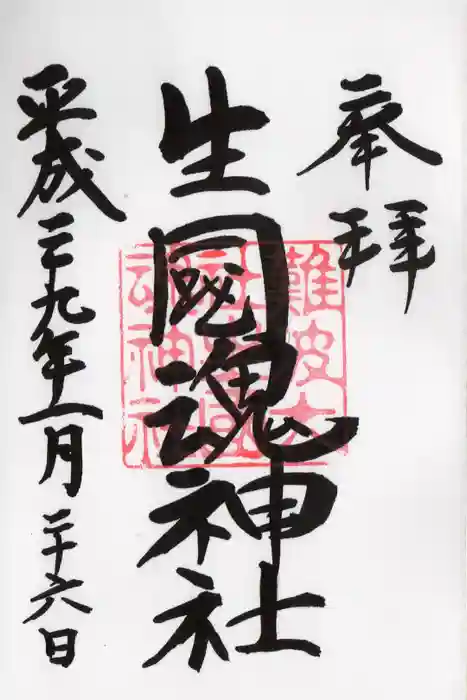 奉拝
生國魂神社
難波大社生國魂神社
平成二九年一月二十六日